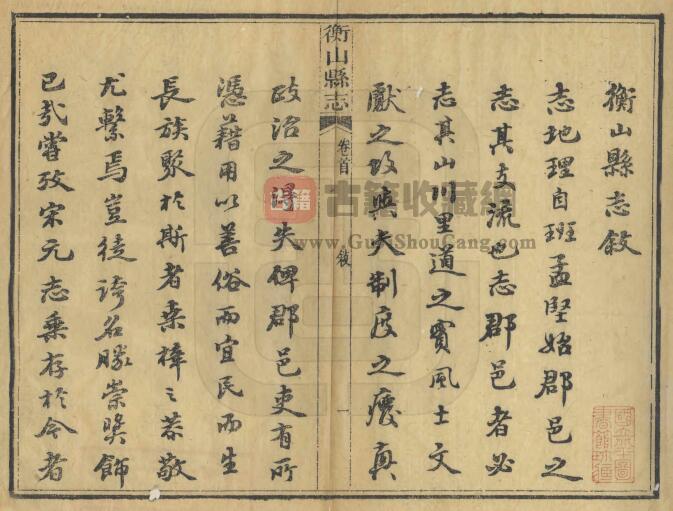 衡山縣志敘
志地理自班孟堅始郡邑之
志其支流也志郡邑者必
志其山川里道之實風土文
獻之攷與夫制度之廢興
政治之得失俾郡邑吏有所
憑藉用以善俗而宜民而生
長族聚於斯者桑梓之恭敬
尤繫焉豈徒誇名勝崇奬飾
已哉嘗攷宋元志乘存於今者
衡山縣志
卷首
敘
一
古籍收藏
www.GuJiShouCang.com
古籍